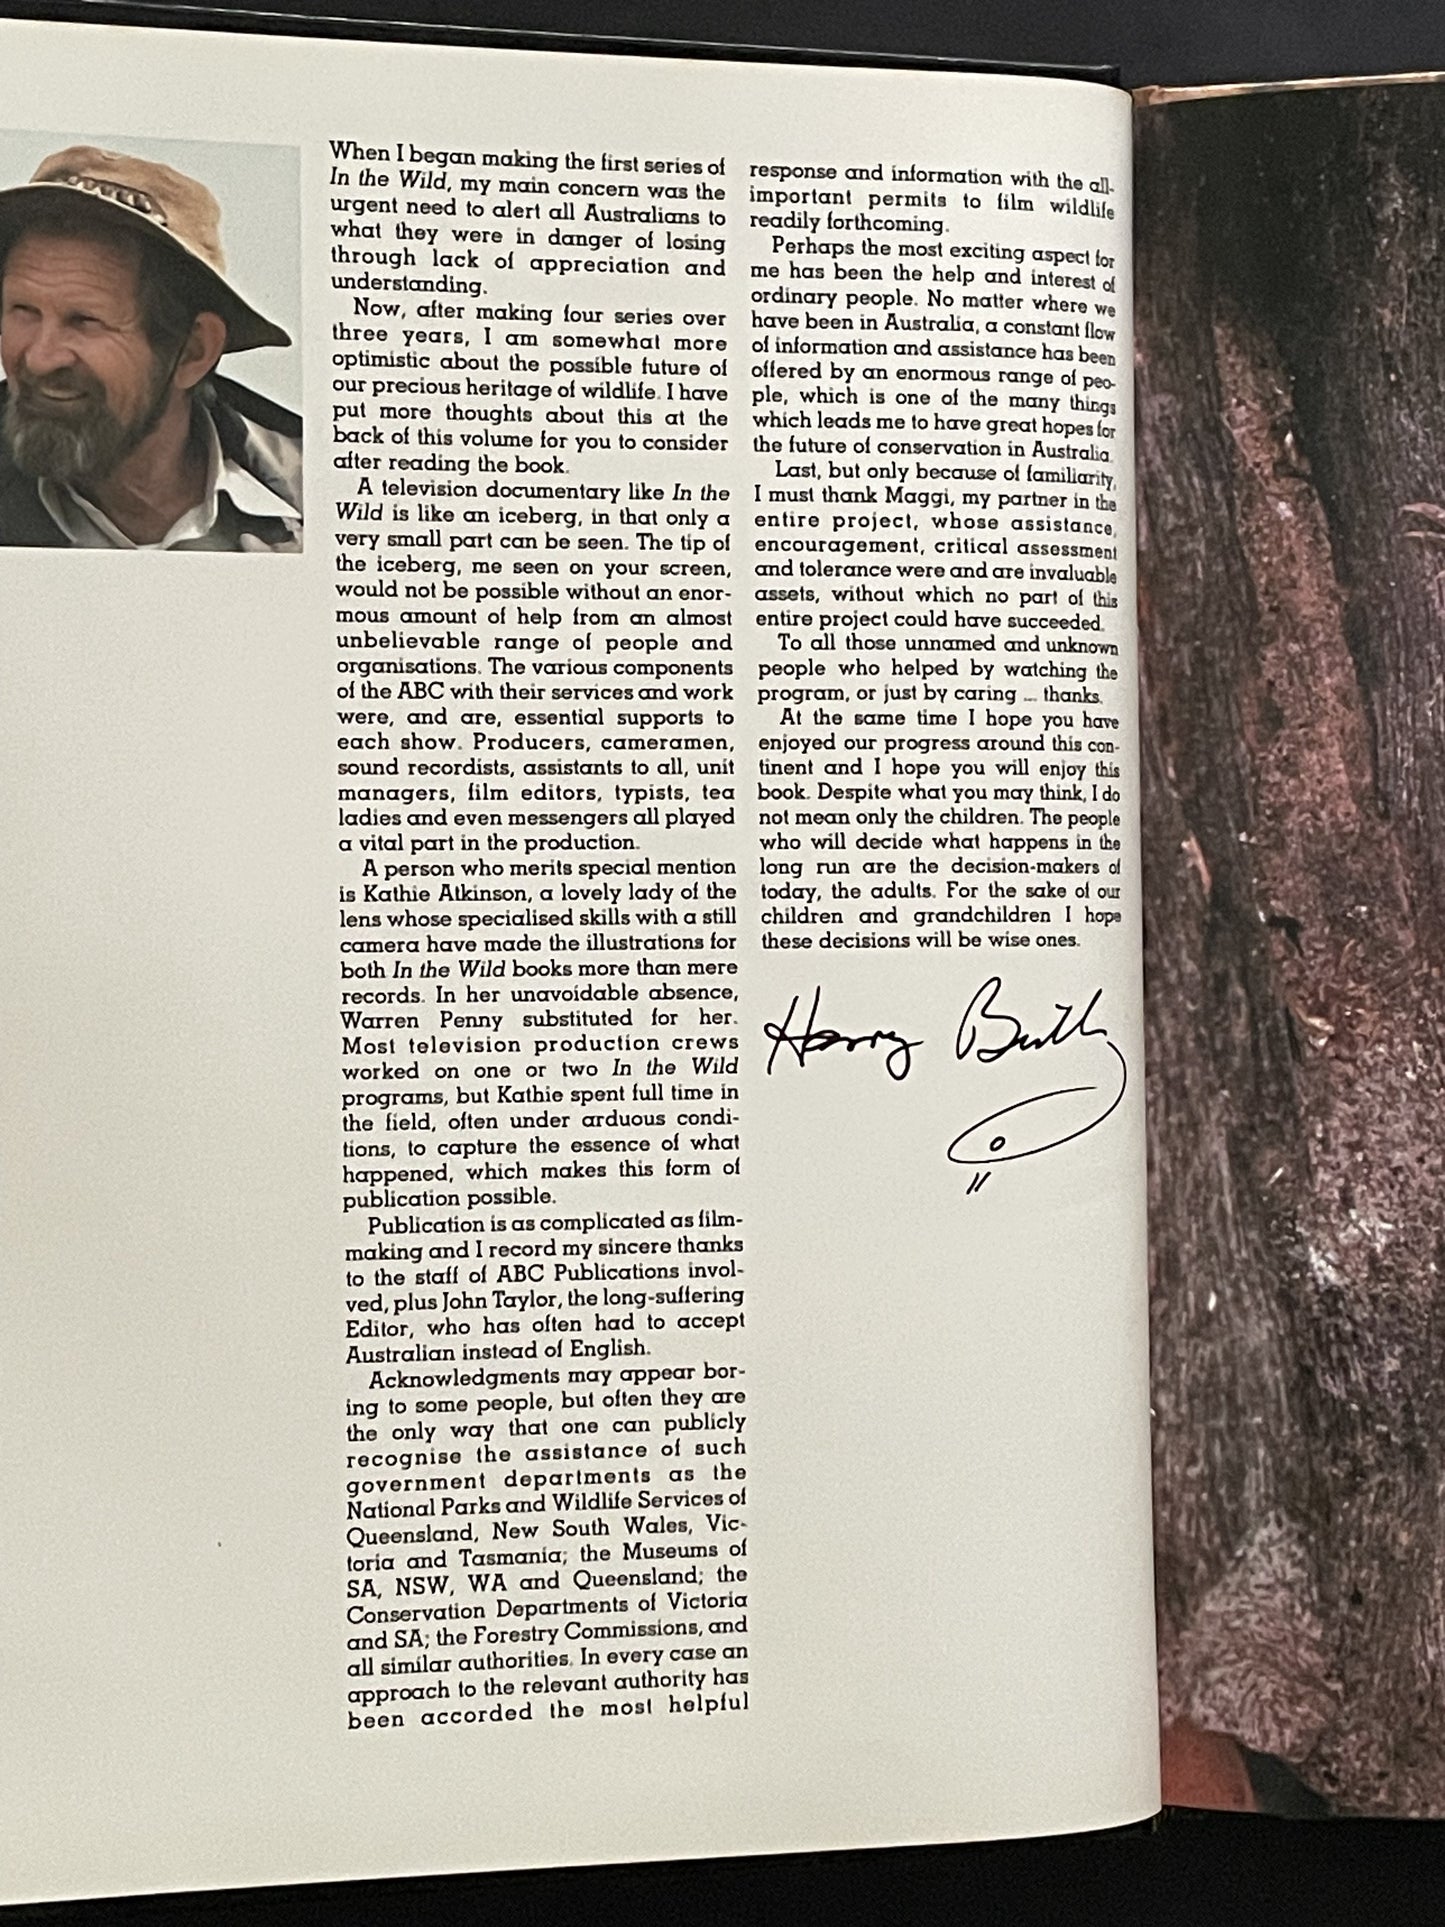 When I began making the first series of
In the Wild, my main concern was the
urgent need to alert all Australians to
what they were in danger of losing
through lack of appreciation and
understanding.
Now, after making four series over
three years, I am somewhat more
optimistic about the possible future of
our precious heritage of wildlife. I have
put more thoughts about this at the
back of this volume for you to consider
after reading the book.
A television documentary like In the
Wild is like an iceberg, in that only a
very small part can be seen. The tip of
the iceberg, me seen on your screen,
would not be possible without an enor-
mous amount of help from an almost
unbelievable range of people and
organisations. The various components
of the ABC with their services and work
were, and are, essential supports to
each show. Producers, cameramen,
sound recordists, assistants to all, unit
managers, film editors, typists, tea
ladies and even messengers all played
a vital part in the production.
A person who merits special mention
is Kathie Atkinson, a lovely lady of the
lens whose specialised skills with a still
camera have made the illustrations for
both In the Wild books more than mere
records. In her unavoidable absence,
Warren Penny substituted for her.
Most television production crews
worked on one or two In the Wild
programs, but Kathie spent full time in
the field, often under arduous condi-
tions, to capture the essence of what
happened, which makes this form of
publication possible.
Publication is as complicated as film-
making and I record my sincere thanks
to the staff of ABC Publications invol-
ved, plus John Taylor, the long-suffering
Editor, who has often had to accept
Australian instead of English.
Acknowledgments may appear bor-
ing to some people, but often they are
the only way that one can publicly
recognise the assistance of such
government departments as the
National Parks and Wildlife Services of
Queensland, New South Wales, Vic-
toria and Tasmania; the Museums of
SA, NSW, WA and Queensland; the
Conservation Departments of Victoria
and SA; the Forestry Commissions, and
all similar authorities. In every case an
approach to the relevant authority has
been accorded the most helpful
response and information with the all-
important permits to film wildlife
readily forthcoming.
Perhaps the most exciting aspect for
me has been the help and interest of
ordinary people. No matter where we
have been in Australia, a constant flow
of information and assistance has been
offered by an enormous range of peo-
ple, which is one of the many things
which leads me to have great hopes for
the future of conservation in Australia.
Last, but only because of familiarity,
I must thank Maggi, my partner in the
entire project, whose assistance,
encouragement, critical assessment
and tolerance were and are invaluable
assets, without which no part of this
entire project could have succeeded.
To all those unnamed and unknown
people who helped by watching the
program, or just by caring ... thanks.
At the same time I hope you have
enjoyed our progress around this con-
tinent and I hope you will enjoy this
book. Despite what you may think, I do
not mean only the children. The people
who will decide what happens in the
long run are the decision-makers of
today, the adults. For the sake of our
children and grandchildren I hope
these decisions will be wise ones.
Harry Butler